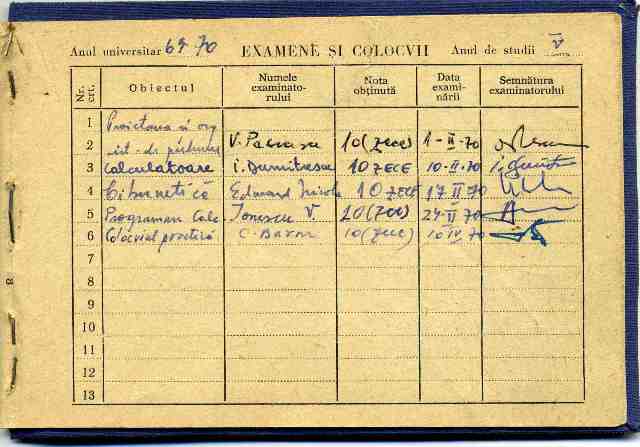 Anul universitar 69-70 EXAMENE ȘI COLOCVII Anul de studii V
Nr. crt. Obiectul Numele examinatorului Nota obținută Data examinării Semnătura examinatorului
1 Proiectarea și org
2 sist. de V. 10 (zece) 1-II-70
3 Calculatoare I. Dumitrescu 10 ZECE 10-II-70
4 Cibernetică Edmond Nicolau 10 ZECE 17 II 70
5 Programarea Calc. Ionescu V. 10 (zece) 24-II 70
6 Colocviul practică C. 10 (zece) 10 IV 70
7
8
9
10
11
12
13
8